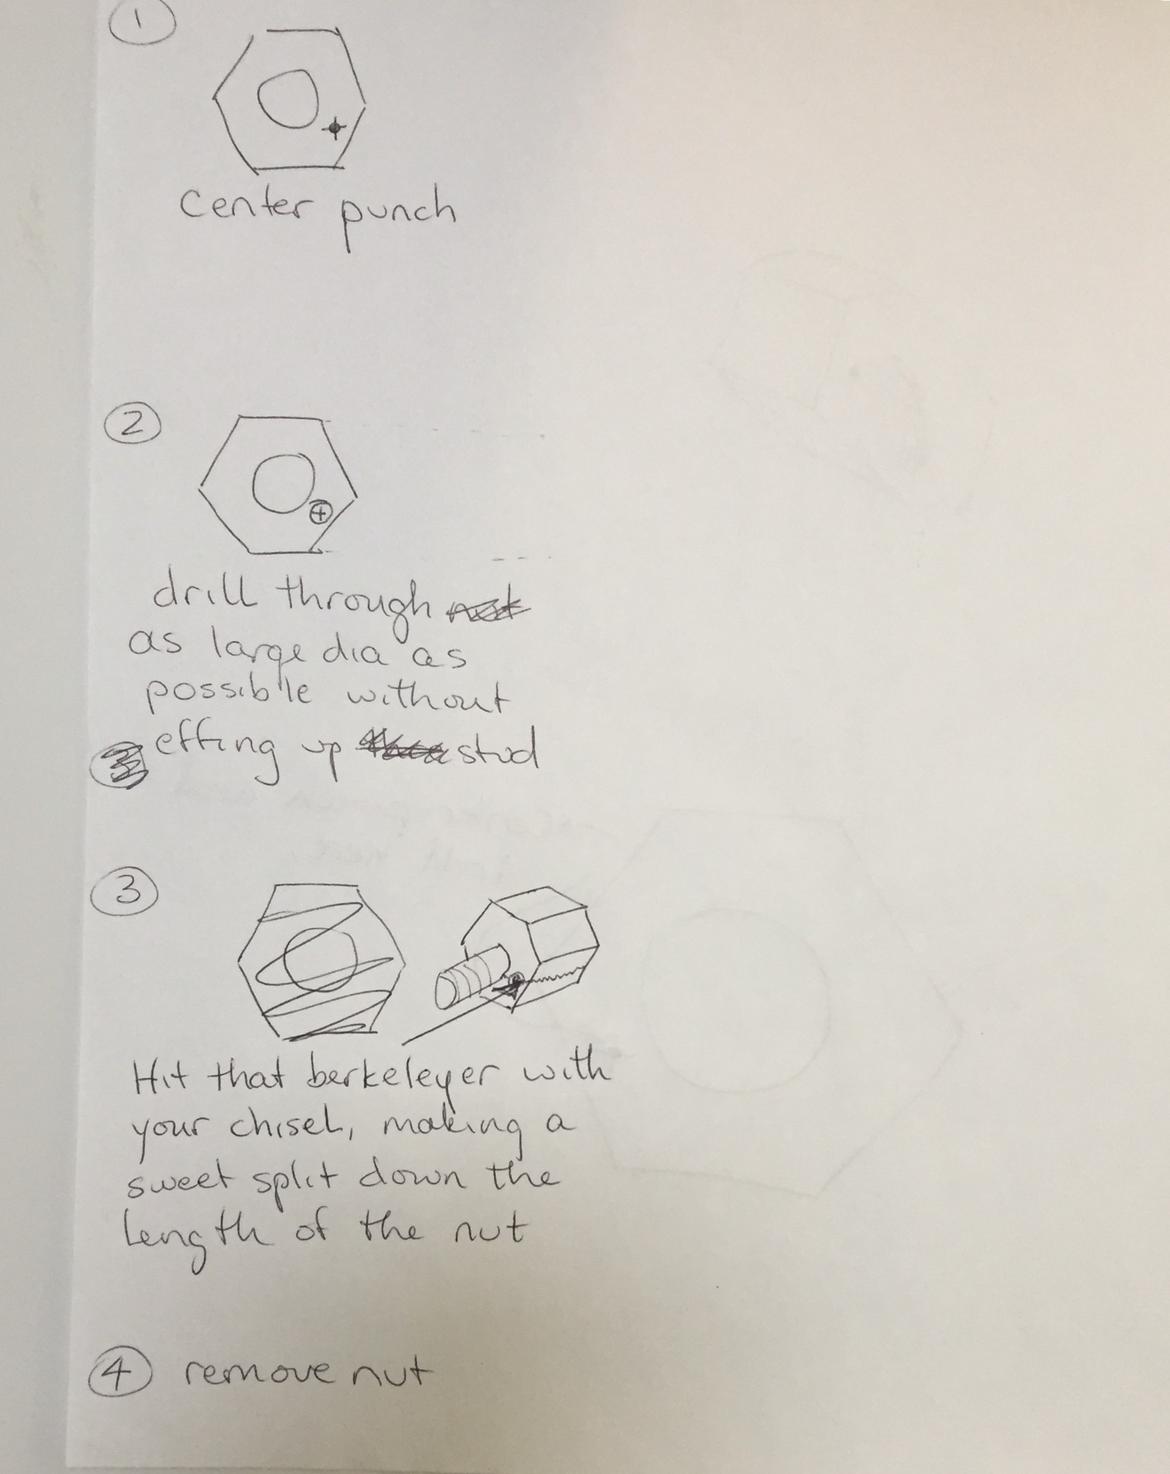 1
center punch
2
drill through
as large dia as
possible without
effing up stud
3
Hit that berkeleyer with
your chisel, making a
sweet split down the
length of the nut
4 remove nut